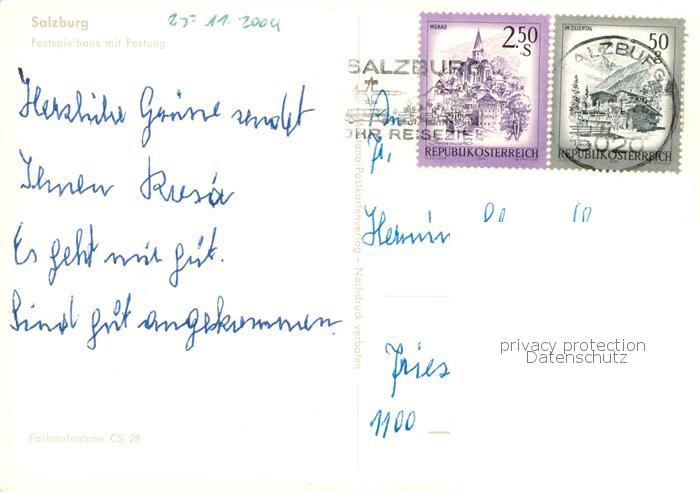 Salzburg
Festspielhaus mit Festung
25 11 2004
Herzliche Grüsse sendet
Ihnen
Es geht mir gut.
Sind gut angekommen.
Farbaufnahme CS 28
Postkartenverlag – Nachdruck verboten
MURAU
2.50 S
REPUBLIK ÖSTERREICH
IM ZILLERTAL
50 g
REPUBLIK ÖSTERREICH
SALZBURG
IHR REISEZIEL
SALZBURG
5020
An
Hermin
Fries
1100
privacy protection
Datenschutz